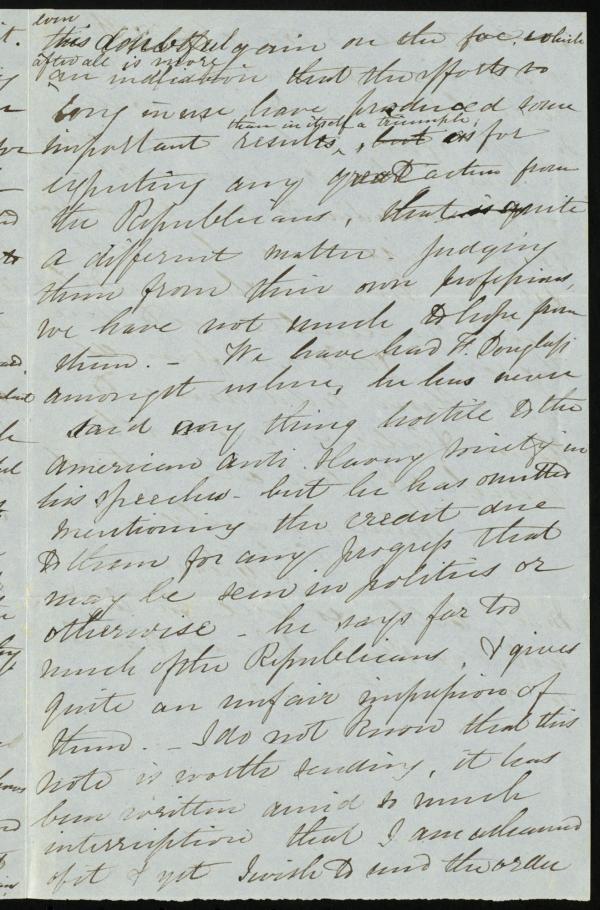 even
this doubtful gain on the foe. which
after all is more
an indication that the efforts so
long in use have produced some
than in itself a triumph,
important results, but as for
expecting any great action from
the Republicans, that is quite
a different matter - judging
them from their own professions,
we have not much to hope from
them. - We have had F. Douglass
amongst us here, he has never
said any thing hostile to the
American Anti Slavery Society in
his speeches - but he has omitted
mentioning the credit due
to them for any progress that
may be seen in politics or
otherwise - he says far too
much of the Republicans, & gives
quite an unfair impression of
them. - I do not know that this
note is worth sending, it has
been written amid so much
interruption that I am ashamed
of it & yet I wish to send the order